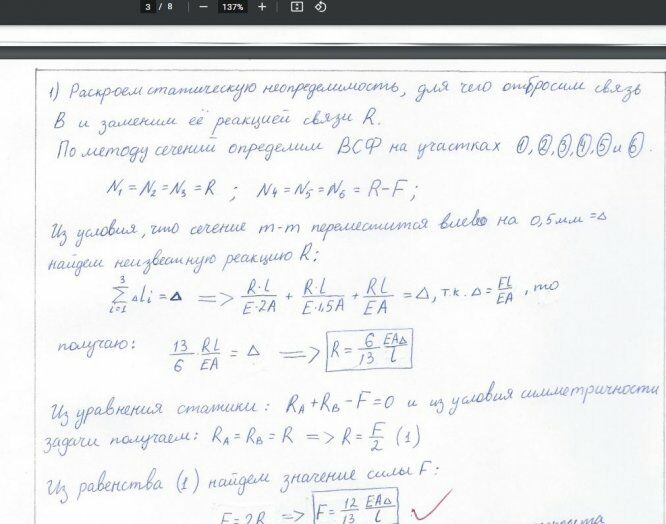 3 / 8 − 137% +
1) Раскроем статическую неопределимость, для чего отбросим связь
B и заменим её реакцией связи R.
По методу сечений определим ВСФ на участках ①, ②, ③, ④, ⑤ и ⑥.
N₁ = N₂ = N₃ = R ; N₄ = N₅ = N₆ = R − F ;
Из условия, что сечение m-m переместится влево на 0,5 мм = Δ
найдем неизвестную реакцию R:
∑³ᵢ₌₁ Δlᵢ = Δ => R·l/E·2A + R·l/E·1,5A + Rl/EA = Δ, т.к. Δ = Fl/EA, то
получаю: 13/6 Rl/EA = Δ => R = 6/13 EAΔ/l
Из уравнения статики: R_A + R_B − F = 0 и из условия симметричности
задачи получаем: R_A = R_B = R => R = F/2 (1)
Из равенства (1) найдем значение силы F:
F = 2R => F = 12/13 EAΔ/l